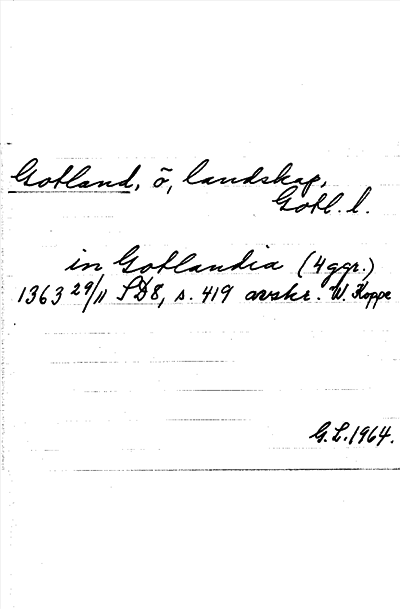 Gotland, ö, landskap,
Gotl. l.
in Gotlandia (4 ggr.)
1363 29/11 SD8, s. 419 avskr. W. Koppe
G.L. 1964.